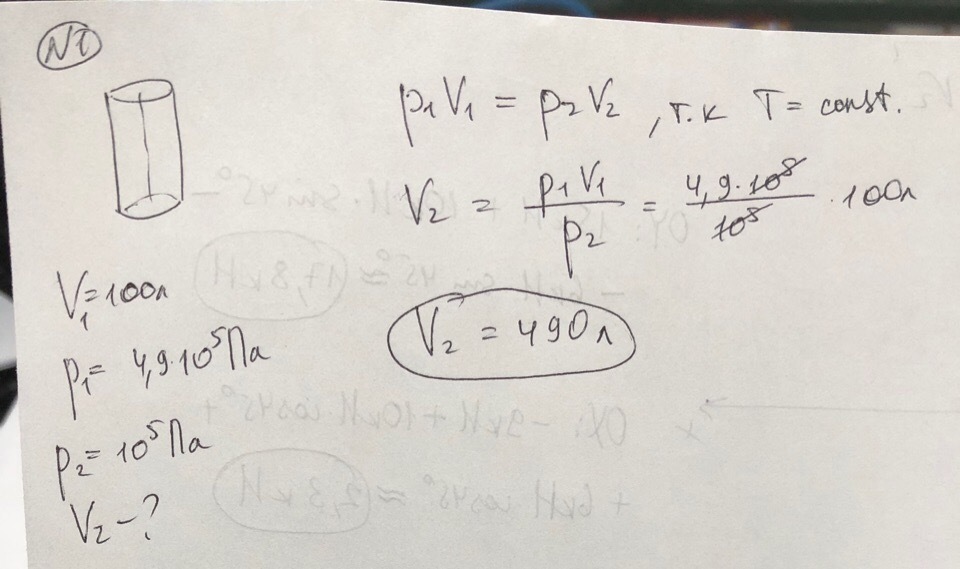 N1
p₁V₁ = p₂V₂, т.к T = const.
V₂ = p₁V₁/p₂ = 4,9·10⁵/10⁵ · 100л
V₂ = 490л
V₁=100л
p₁= 4,9·10⁵Па
p₂= 10⁵Па
V₂ – ?